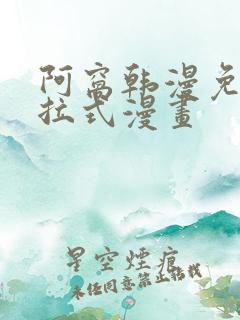 阿窩韩漫免
拉式漫畫
星空煙痕
未经同意禁止转载